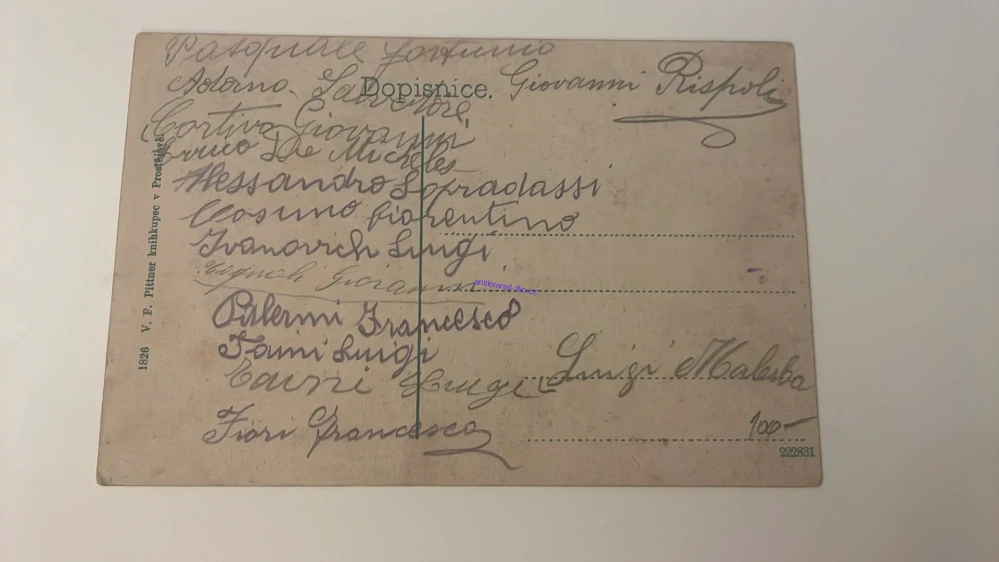 Pasquale Fortunio
Dopisnice.
Aderno Salvatore
Giovanni Rispoli
Cortiva Giovanni
Enrico De Micheles
Alessandro Sopradassi
Cosimo Fiorentino
Ivanovich Luigi
Giovanni
Palermi Francesco
Taini Luigi
Luigi
Luigi Malerba
Fiori Francesco
100-
222831
1826 V. F. Pittner knihkupec v Prostějově